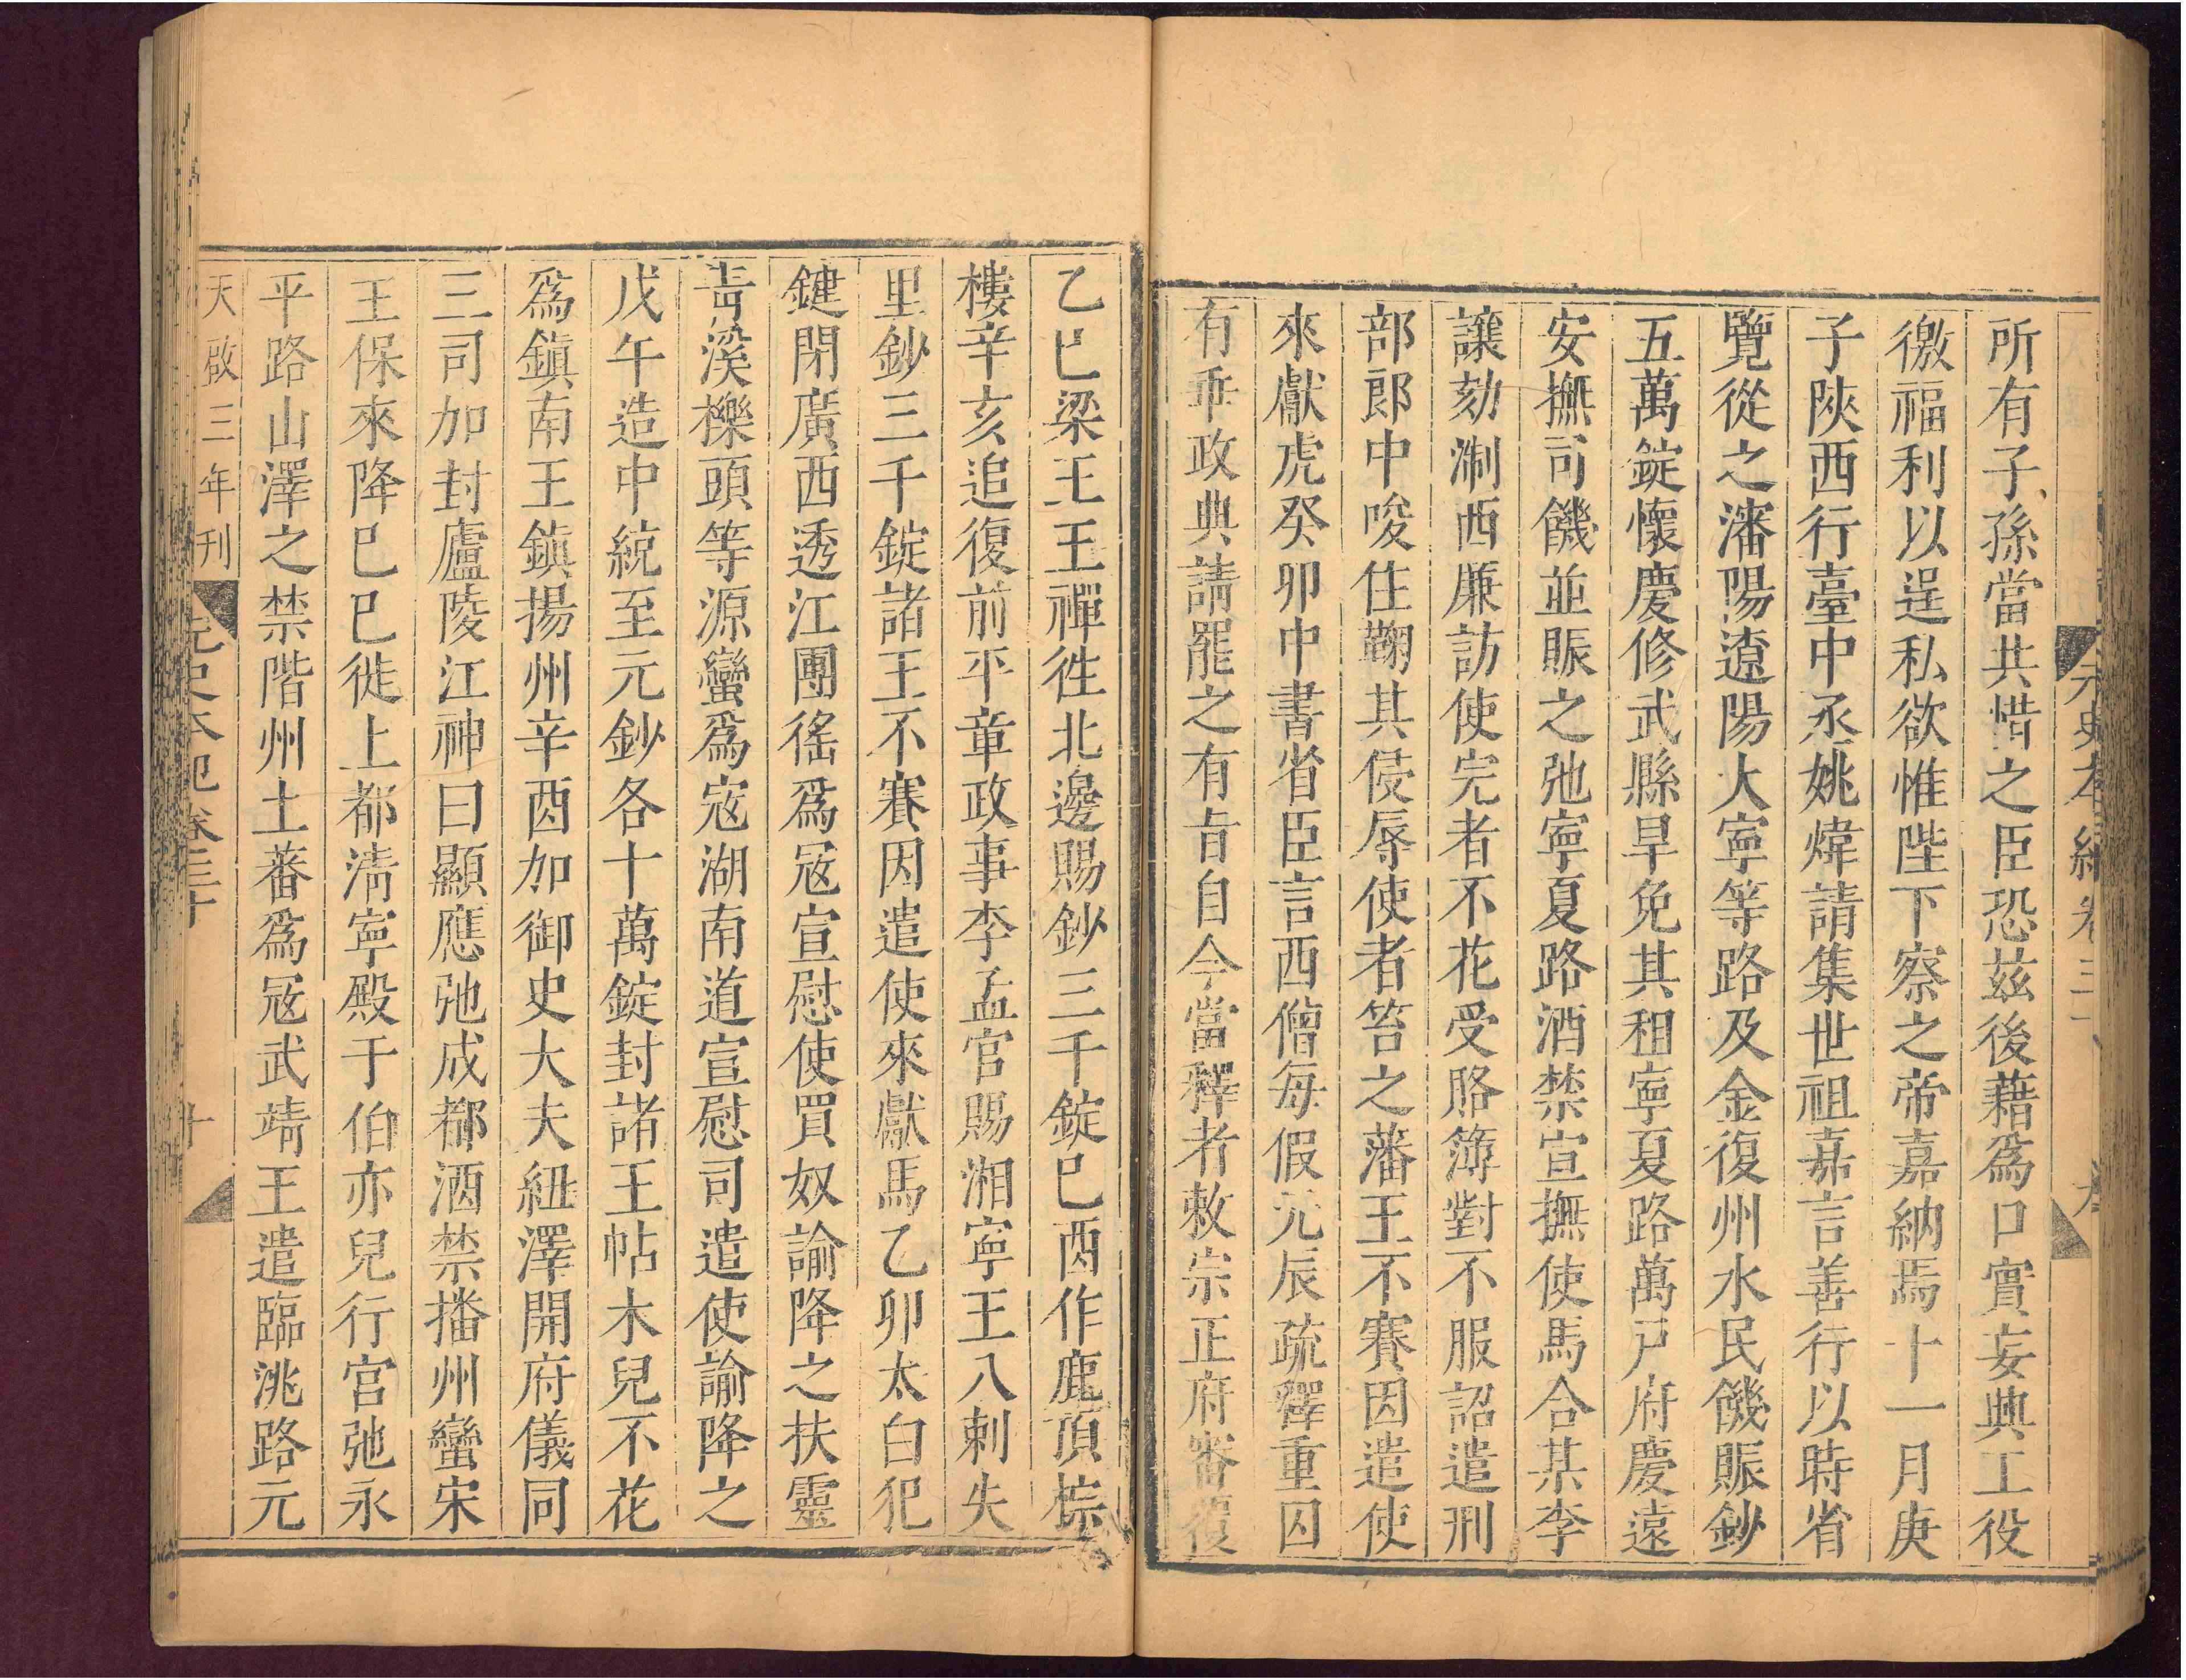 元史本紀卷三十
九
所有子孫當共惜之臣恐兹後藉爲口實妄典工役
徼福利以逞私欲惟陛下察之帝嘉納焉十一月庚
子陜西行臺中丞姚煒請集世祖嘉言善行以時省
覽從之瀋陽遼陽大寧等路及金復州水民饑賑鈔
五萬錠懷慶修武縣旱免其租寧夏路萬戸府慶遠
安撫司饑並賑之弛寧夏路酒禁宣撫使馬合某李
讓劾淛西廉訪使完者不花受賂簿對不服詔遣刑
部郎中唆住鞠其侵辱使者笞之藩王不賽因遣使
來獻虎癸卯中書省臣言西僧每假元辰疏釋重囚
有乖政典請罷之有旨自今當釋者敕宗正府審覆
乙巳梁王王禪徃北邊賜鈔三千錠巳酉作鹿頂椶
樓辛亥追復前平章政事李孟官賜湘寧王八剌失
里鈔三千錠諸王不賽因遣使來獻馬乙卯太白犯
鍵閉廣西透江團徭爲冦宣慰使買奴諭降之扶靈
青溪櫟頭等源蠻爲寇湖南道宣慰司遣使諭降之
戊午造中統至元鈔各十萬錠封諸王帖木兒不花
爲鎮南王鎮揚州辛酉加御史大夫紐澤開府儀同
三司加封廬陵江神曰顯應弛成都酒禁播州蠻宋
王保來降巳巳徙上都清寧殿于伯亦兒行宫弛永
平路山澤之禁階州土蕃爲冦武靖王遣臨洮路元
天啟三年刊
元史本紀卷三十
十